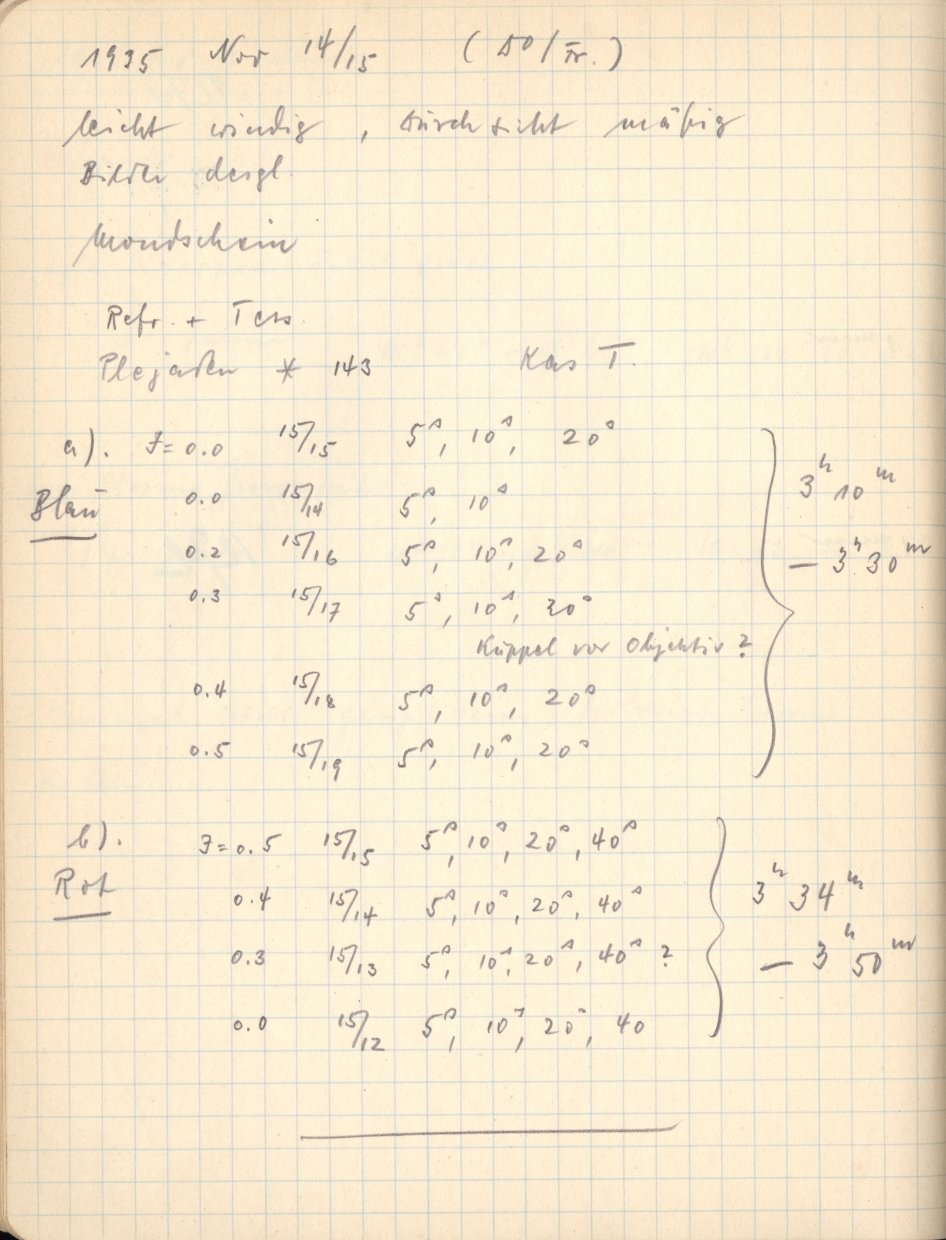 1935 Nov 14/15 (Do/Fr.)
leicht windig, Durchsicht mäßig
Bilder desgl.
Mondschein
Refr. + Tess.
Plejaden * 143 Kas T.
a). F = 0.0 15/15 5ˢ, 10ˢ, 20ˢ
Blau 0.0 15/14 5ˢ, 10ˢ 3ʰ 10ᵐ
0.2 15/16 5ˢ, 10ˢ, 20ˢ — 3ʰ 30ᵐ
0.3 15/17 5ˢ, 10ˢ, 20ˢ
Kuppel vor Objektiv?
0.4 15/18 5ˢ, 10ˢ, 20ˢ
0.5 15/19 5ˢ, 10ˢ, 20ˢ
b). F = 0.5 15/15 5ˢ, 10ˢ, 20ˢ, 40ˢ
Rot 0.4 15/14 5ˢ, 10ˢ, 20ˢ, 40ˢ 3ʰ 34ᵐ
0.3 15/13 5ˢ, 10ˢ, 20ˢ, 40ˢ ? — 3ʰ 50ᵐ
0.0 15/12 5ˢ, 10ˢ, 20ˢ, 40